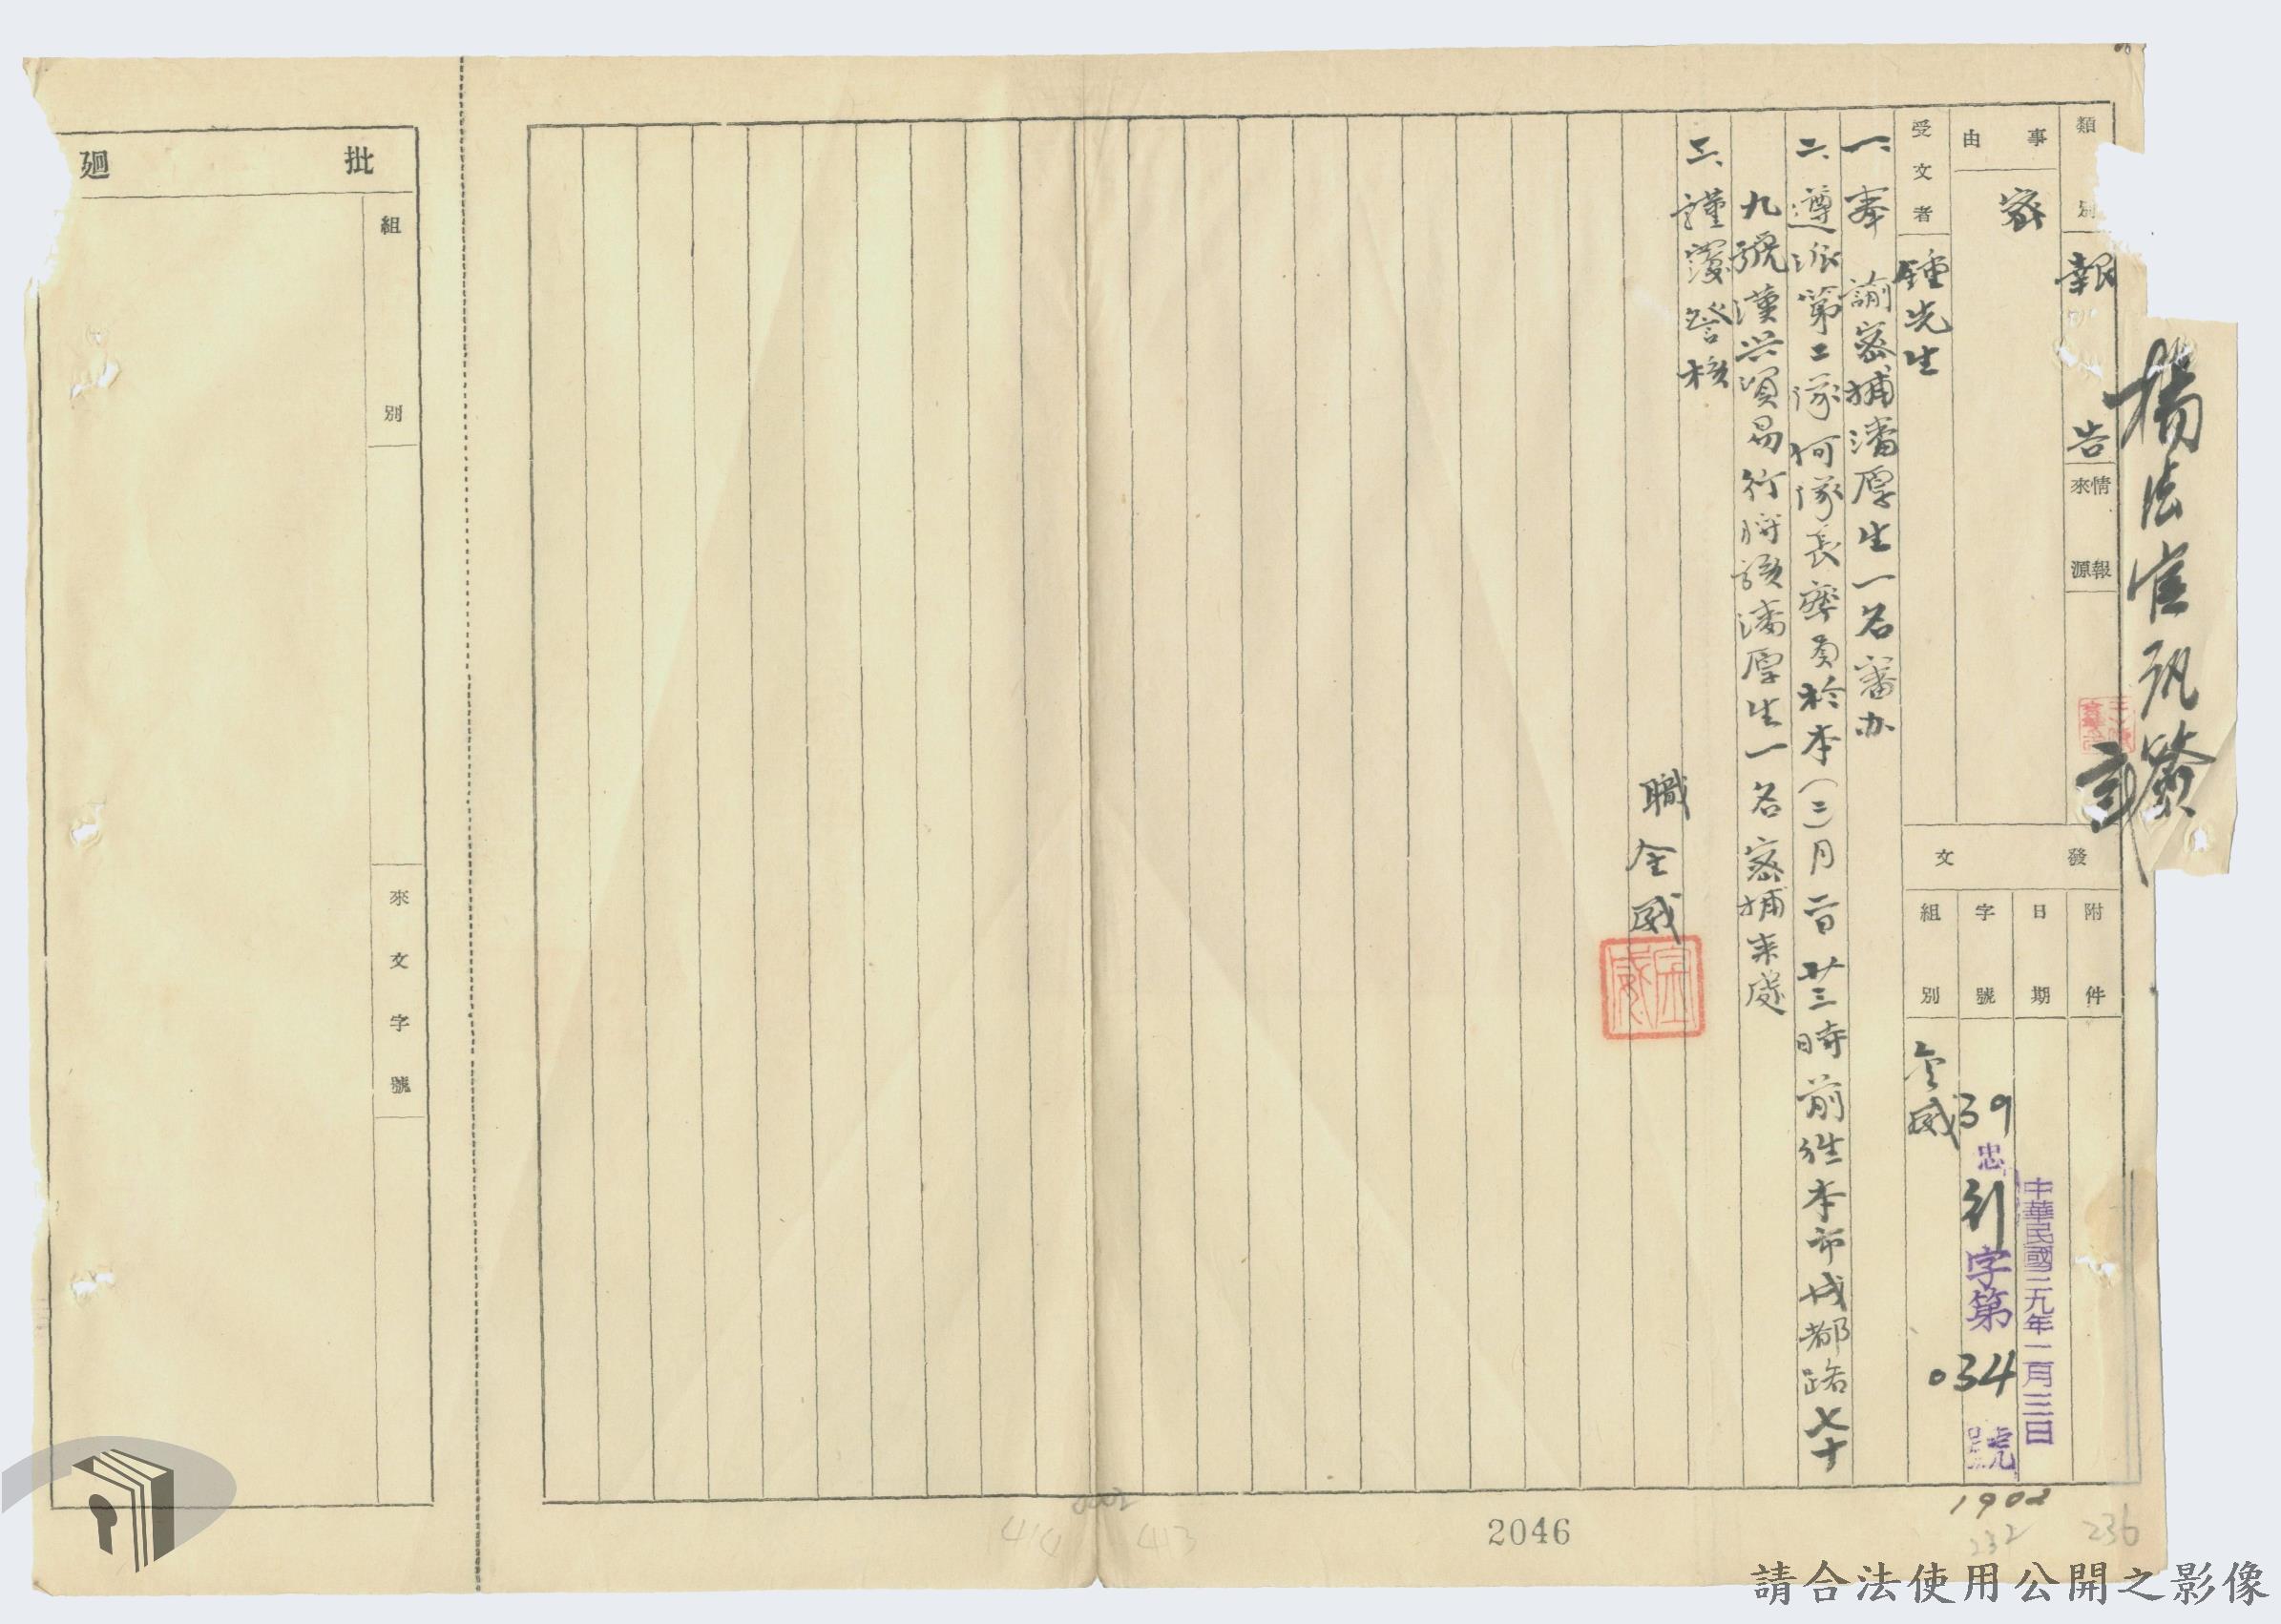 楊法官訊簽
類別
報告
情報來源
事由
密
受文者
鍾先生
發文
附件
日期
中華民國三九年二月三日
字號
39忠引字第034號
組別
金威
一、奉 諭密捕潘厚生一名審办
二、遵派第二隊何隊長率員於本(二)月二日廿三時前往本市成都路七十
九號漢興貿易行將該潘厚生一名密捕來處
三、謹覆詧核
職金威
金威
批廻
組別
來文字號
2046
1902
232
236
0002
414
413
請合法使用公開之影像